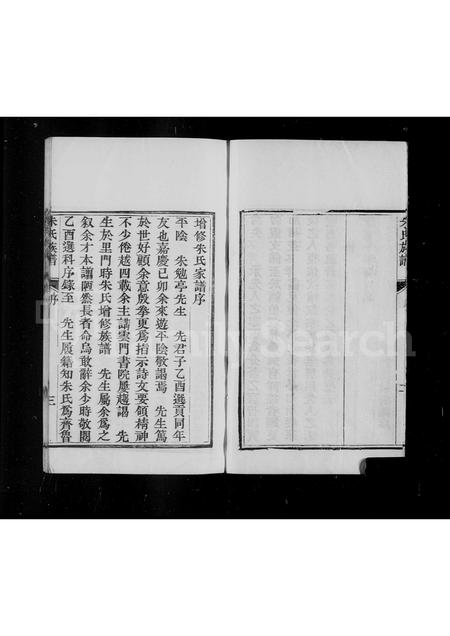 朱氏族譜
二
增修朱氏家譜序
平陰 朱勉亭先生 先君子乙酉選貢同年
友也嘉慶己卯余來遊平陰敬謁焉 先生篤
於世好顧余意殷拳更為指示詩文要領精神
不少倦越四載余主講雲門書院屢趨謁 先
生於里門時朱氏增修族譜 先生屬余為之
敘余才本譾陋然長者命烏敢辭余少時敬閱
乙酉選科序錄至 先生履籍知朱氏為齊魯
朱氏族譜
序
三
FamilySearch